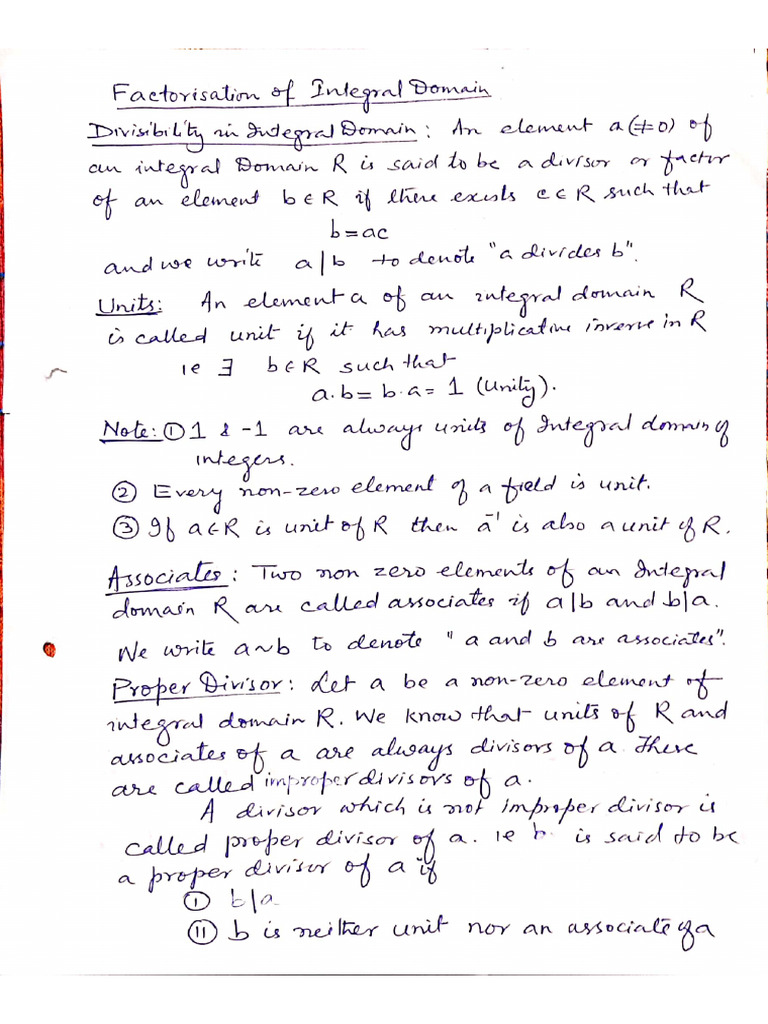 Factorisation of Integral Domain
Divisibility in Integral Domain: An element a(≠0) of
an integral Domain R is said to be a divisor or factor
of an element b∈R if there exists c∈R such that
b=ac
and we write a|b to denote "a divides b".
Units: An element a of an integral domain R
is called unit if it has multiplicative inverse in R
ie ∃ b∈R such that
a.b = b.a = 1 (Unity).
Note: ① 1 & -1 are always units of Integral domain of
integers.
② Every non-zero element of a field is unit.
③ If a∈R is unit of R then a⁻¹ is also a unit of R.
Associates: Two non zero elements of an Integral
domain R are called associates if a|b and b|a.
We write a~b to denote "a and b are associates".
Proper Divisor: Let a be a non-zero element of
integral domain R. We know that units of R and
associates of a are always divisors of a. These
are called improper divisors of a.
A divisor which is not improper divisor is
called proper divisor of a. ie b is said to be
a proper divisor of a if
① b|a
⑪ b is neither unit nor an associate of a